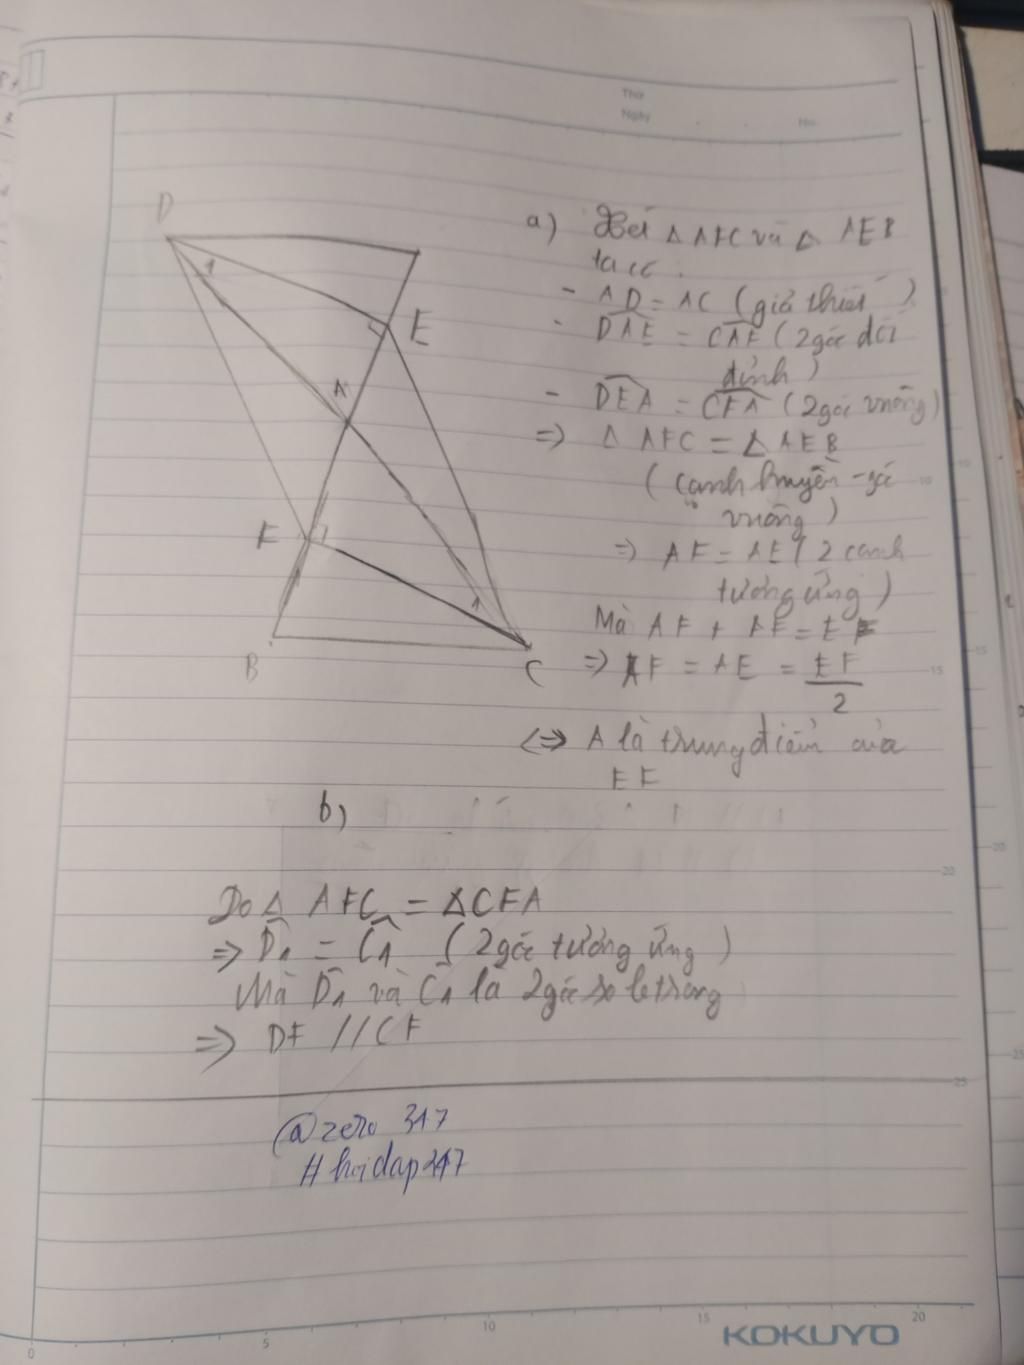 Thứ
Ngày
No.
D
1
E
A
F
1
1
B
C
a) Xét Δ AFC và Δ AEB
ta có :
- AD = AC (giả thiết)
- DAE = CAF (2 góc đối
đỉnh)
- DEA = CFA (2 góc vuông)
=> Δ AFC = Δ AEB
(cạnh huyền - góc
vuông)
=> AF = AE (2 cạnh
tương ứng)
Mà AF + AE = EF
=> AF = AE = EF
2
<=> A là trung điểm của
EF
b)
Do Δ AFC = Δ CFA
=> D1 = C1 (2 góc tương ứng)
Mà D1 và C1 là 2 góc so le trong
=> DE // CF
@zero 317
#hoidap247
0 5 10 15 20
KOKUYO